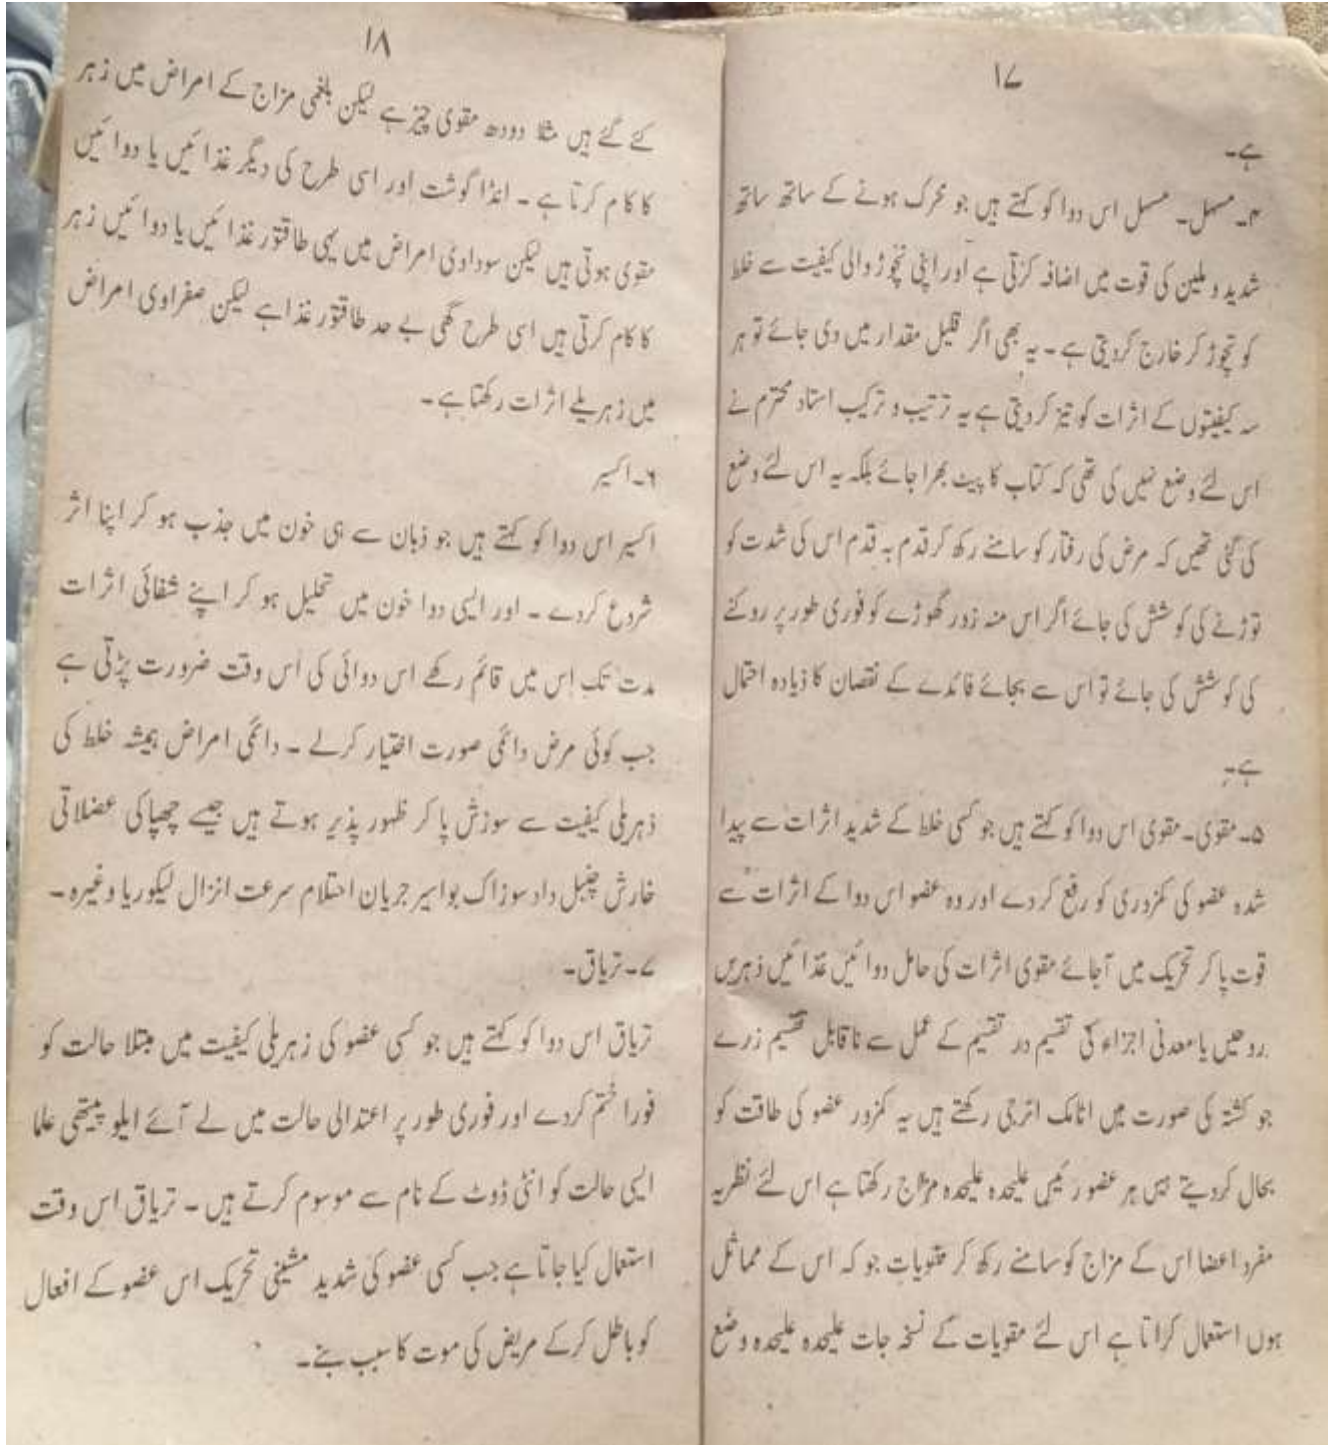 ۱۷
ہے۔
۴۔ مسہل۔ مسہل اس دوا کو کہتے ہیں جو محرک ہونے کے ساتھ ساتھ
شدید و ملین کی قوت میں اضافہ کرتی ہے اور اپنی نچوڑ والی کیفیت سے خلط
کو نچوڑ کر خارج کر دیتی ہے۔ یہ بھی اگر قلیل مقدار میں دی جائے تو ہر
سہ کیفیتوں کے اثرات کو تیز کر دیتی ہے یہ ترتیب و ترکیب استاد محترم نے
اس لئے وضع نہیں کی تھی کہ کتاب کا پیٹ بھرا جائے بلکہ یہ اس لئے وضع
کی گئی تھیں کہ مرض کی رفتار کو سامنے رکھ کر قدم بہ قدم اس کی شدت کو
توڑنے کی کوشش کی جائے اگر اس منہ زور گھوڑے کو فوری طور پر روکنے
کی کوشش کی جائے تو اس سے بجائے فائدے کے نقصان کا زیادہ احتمال
ہے۔
۵۔ مقوی۔ مقوی اس دوا کو کہتے ہیں جو کسی خلط کے شدید اثرات سے پیدا
شدہ عضو کی کمزوری کو رفع کر دے اور وہ عضو اس دوا کے اثرات سے
قوت پا کر تحریک میں آجائے مقوی اثرات کی حامل دوائیں غذائیں ذہریں
روحیں یا معدنی اجزاء کی تقسیم در تقسیم کے عمل سے ناقابل تقسیم زرے
جو کشتہ کی صورت میں اٹامک انرجی رکھتے ہیں یہ کمزور عضو کی طاقت کو
بحال کر دیتے ہیں ہر عضو رئیس علیحدہ علیحدہ مزاج رکھتا ہے اس لئے نظریہ
مفرد اعضا اس کے مزاج کو سامنے رکھ کر مقویات جو کہ اس کے مماثل
ہوں استعمال کراتا ہے اس لئے مقویات کے نسخہ جات علیحدہ علیحدہ وضع
۱۸
کئے گئے ہیں مثلا دودھ مقوی چیز ہے لیکن بلغمی مزاج کے امراض میں زہر
کا کام کرتا ہے۔ انڈا گوشت اور اسی طرح کی دیگر غذائیں یا دوائیں
مقوی ہوتی ہیں لیکن سوداوی امراض میں یہی طاقتور غذائیں یا دوائیں زہر
کا کام کرتی ہیں اسی طرح گھی بے حد طاقتور غذا ہے لیکن صفراوی امراض
میں زہریلے اثرات رکھتا ہے۔
۶۔ اکسیر
اکسیر اس دوا کو کہتے ہیں جو ذبان سے ہی خون میں جذب ہو کر اپنا اثر
شروع کر دے۔ اور ایسی دوا خون میں تحلیل ہو کر اپنے شفائی اثرات
مدت تک اس میں قائم رکھے اس دوائی کی اس وقت ضرورت پڑتی ہے
جب کوئی مرض دائمی صورت اختیار کرلے۔ دائمی امراض ہمیشہ خلط کی
ذہریلی کیفیت سے سوزش پا کر ظہور پذیر ہوتے ہیں جیسے چھپاکی عضلاتی
خارش چنبل داد سوزاک بواسیر جریان احتلام سرعت انزال لیکوریا وغیرہ۔
۷۔ تریاق۔
تریاق اس دوا کو کہتے ہیں جو کسی عضو کی زہریلی کیفیت میں مبتلا حالت کو
فورا ختم کر دے اور فوری طور پر اعتدالی حالت میں لے آئے ایلو پیتھی علما
ایسی حالت کو انٹی ڈوٹ کے نام سے موسوم کرتے ہیں۔ تریاق اس وقت
استعمال کیا جاتا ہے جب کسی عضو کی شدید مشینی تحریک اس عضو کے افعال
کو باطل کرکے مریض کی موت کا سبب بنے۔